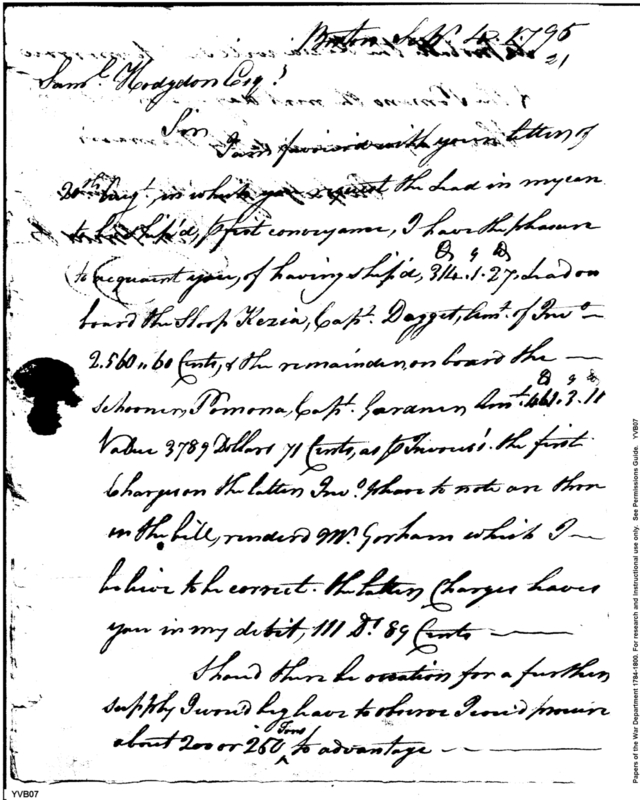 Boston Sepr. 4. 1795
21
Saml. Hodgdon Esqr
Sir
I am favored with your letter of
20th Augt. in which you request the Lead in my care
to be ship'd, p first conveyance, I have the pleasure
to acquaint you, of having ship'd, 314.1.27. Lead on
board the Sloop Kezia, Capt. Dagget, Amt. of Invo
2.560,,60 Cents, & the remainder, on board the
Schooner, Pomona, Capt. Gardner Amt. 461.3.11
Value 3789 Dollars 71 Cents, as p Invoice's. the first
Charges on the latter Invo. I have to note are thos
in the bill, renderd Mr. Gorham which I
believe to be correct. the latter Charges leaves
you in my debit, 111 Ds 89 Cents
Should there be occation for a further
supply I wou'd beg leave to observe I cou'd procure
about 200 or 250 Tons to advantage
YVB07
Papers of the War Department 1784-1800. For research and instructional use only. See Permissions Guide. YVB07